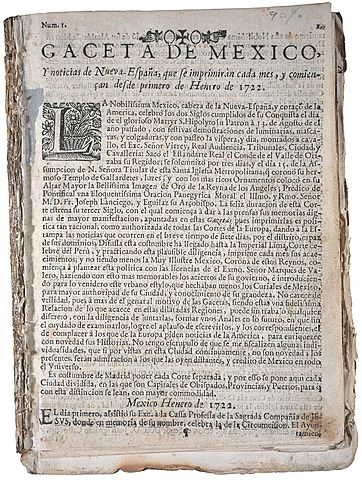 Num. 1.
90/
GACETA DE MEXICO,
Y noticias de Nueva-España, que se imprimiràn cada mes, y comien-
çan desde primero de Henero de 1722.
LA Nobilissima Mexico, cabeza de la Nueva-España, y coraçõ de la
America, celebrò los dos Siglos cumplidos de su Conquista el dia
de el glorioso Martyr S. Hipolyto su Patron à 13. de Agosto de el
año passado, con festivas demostraciones de luminarias, masca-
ras, y colgaduras, y con passeo la vispera, y dia, montados à cava-
llo, el Exc. Señor Virrey, Real Audiencia, Tribunales, Ciudad, y
Cavalleria: Sacò el Estandarte Real el Conde de el Valle de Oris-
aba su Regidor; se solemnizò por tres dias, y el dia 15. de la As-
sumpcion de N. Señora Titular de esta Santa Iglesia Metropolitana, se coronò su her-
moso Templo de Gallardetes, luzes, y con los mas ricos Ornamentos colocò en su
Altar Mayor la Bellissima Imagen de Oro de la Reyna de los Angeles, Predicò de
Pontifical vna Eloquentissima Oracion Panegyrica Moral el Illmo. y Rmo. Señor
M. D. Fr. Joseph Lanciego, y Eguilaz su Arçobispo. La feliz duracion de esta Cor-
te estrena su tercer Siglo, con el qual comiença à dar à las prensas sus memorias dig-
nas de mayor manifestacion, apuntadas en estas Gazetas, pues imprimirlas es poli-
tica tan racional, como authorizada de todas las Cortes de la Europa, dando à la Es-
tampa las noticias que ocurren en el breve tiempo de siete dias, por el distrito, capaz
de sus dominios; Difusa esta costumbre ha llegado hasta la Imperial Lima, Corte ce-
lebre del Perù, y practicando esta plausible diligencia, imprime cada mes sus acae-
cimientos; y no siendo menos la Muy Ilustre Mexico, Corona de estos Reynos, co-
miença à plantear esta politica con las licencias de el Exmo. Señor Marqués de Va-
lero, haziendo con esto mas memorables los aciertos de su govierno, è introducien-
do para lo venidero este vrbano estylo, que hechaban menos los Curiales de Mexico,
para mayor authoridad de su Ciudad, y conocimiento de su grandeza. No carece de
vtilidad, pues à mas de el general motivo de las Gacetas, siendo esta vna fidelissima
Relacion de lo que acaece en estas dilatadas Regiones, puede sin trabajo qualquier
discreto, con la diligencia de juntarlas, formar vnos Anales en lo futuro, en que sin
el cuydado de examinarlos, logre el aplauso de escrevirlos, y los correspondientes, el
de complacer à los que de la Europa piden noticias de la America, para enriquecer
con novedad sus Historias. No tengan escrupulo de que se me fiscalizen algunas indi-
vidualidades, que si por vistas en esta Ciudad comunmente, no son novedad à los
presentes, seràn admiracion à los que las oyen distantes, y credito de Mexico en todo
el Vniverso.
Es costumbre de Madrid poner cada Corte separada, y por esso se pone aqui cada
Ciudad dividida, en las que son Capitales de Obispados, Provincias, y Puertos, para q̃
con esta distincion se lean, con mayor commodidad.
Mexico Henero de 1722.
EL dia primero, assistiò su Exc. à la Cassa Professa de la Sagrada Compañia de JE-
SVS, donde en memoria de su nombre, celebra la de la Circumcision. El Ayun-
tamien-